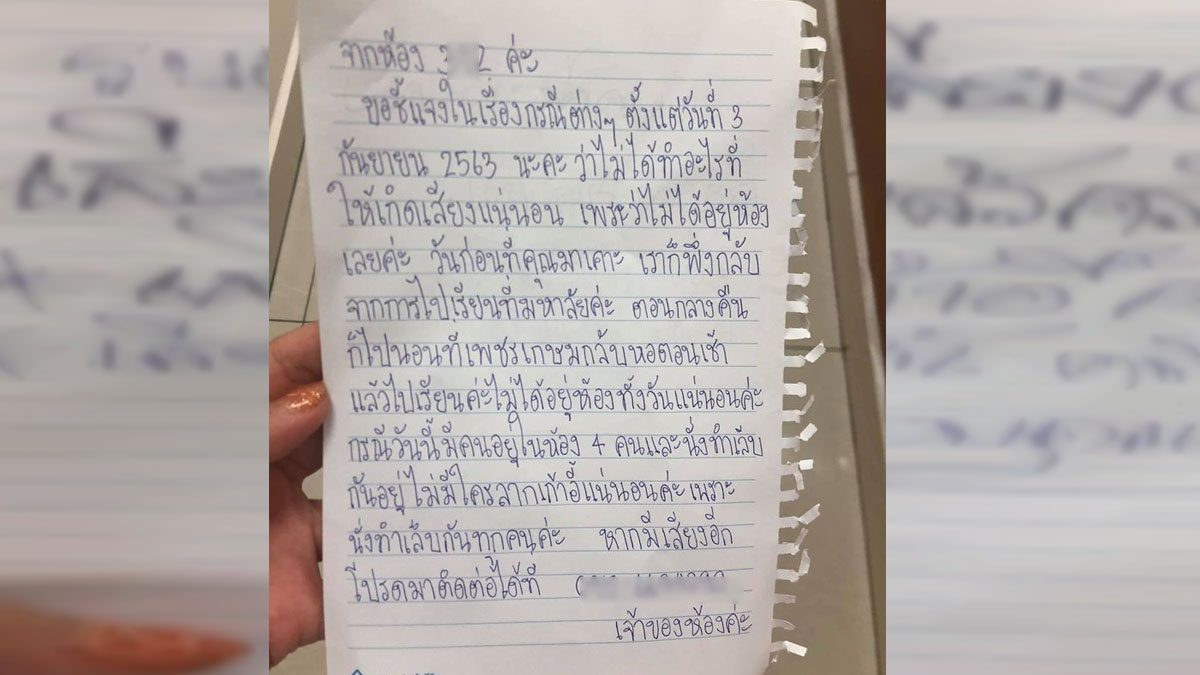 จากห้อง 3 2 ค่ะ
ขอชี้แจงในเรื่องกรณีต่างๆ ตั้งแต่วันที่ 3
กันยายน 2563 นะคะ ว่าไม่ได้ทำอะไรที่
ให้เกิดเสียงแน่นอน เพราะว่าไม่ได้อยู่ห้อง
เลยค่ะ วันก่อนที่คุณมาเคาะ เราก็พึ่งกลับ
จากการไปเรียนที่มหาลัยค่ะ ตอนกลางคืน
ก็ไปนอนที่เพชรเกษมกลับหอตอนเช้า
แล้วไปเรียนค่ะไม่ได้อยู่ห้องทั้งวันแน่นอนค่ะ
กรณีวันนี้มีคนอยู่ในห้อง 4 คนและนั่งทำเล็บ
กันอยู่ ไม่มีใครลากเก้าอี้แน่นอนค่ะ เพราะ
นั่งทำเล็บกันทุกคนค่ะ หากมีเสียงอีก
โปรดมาติดต่อได้ที่
เจ้าของห้องค่ะ